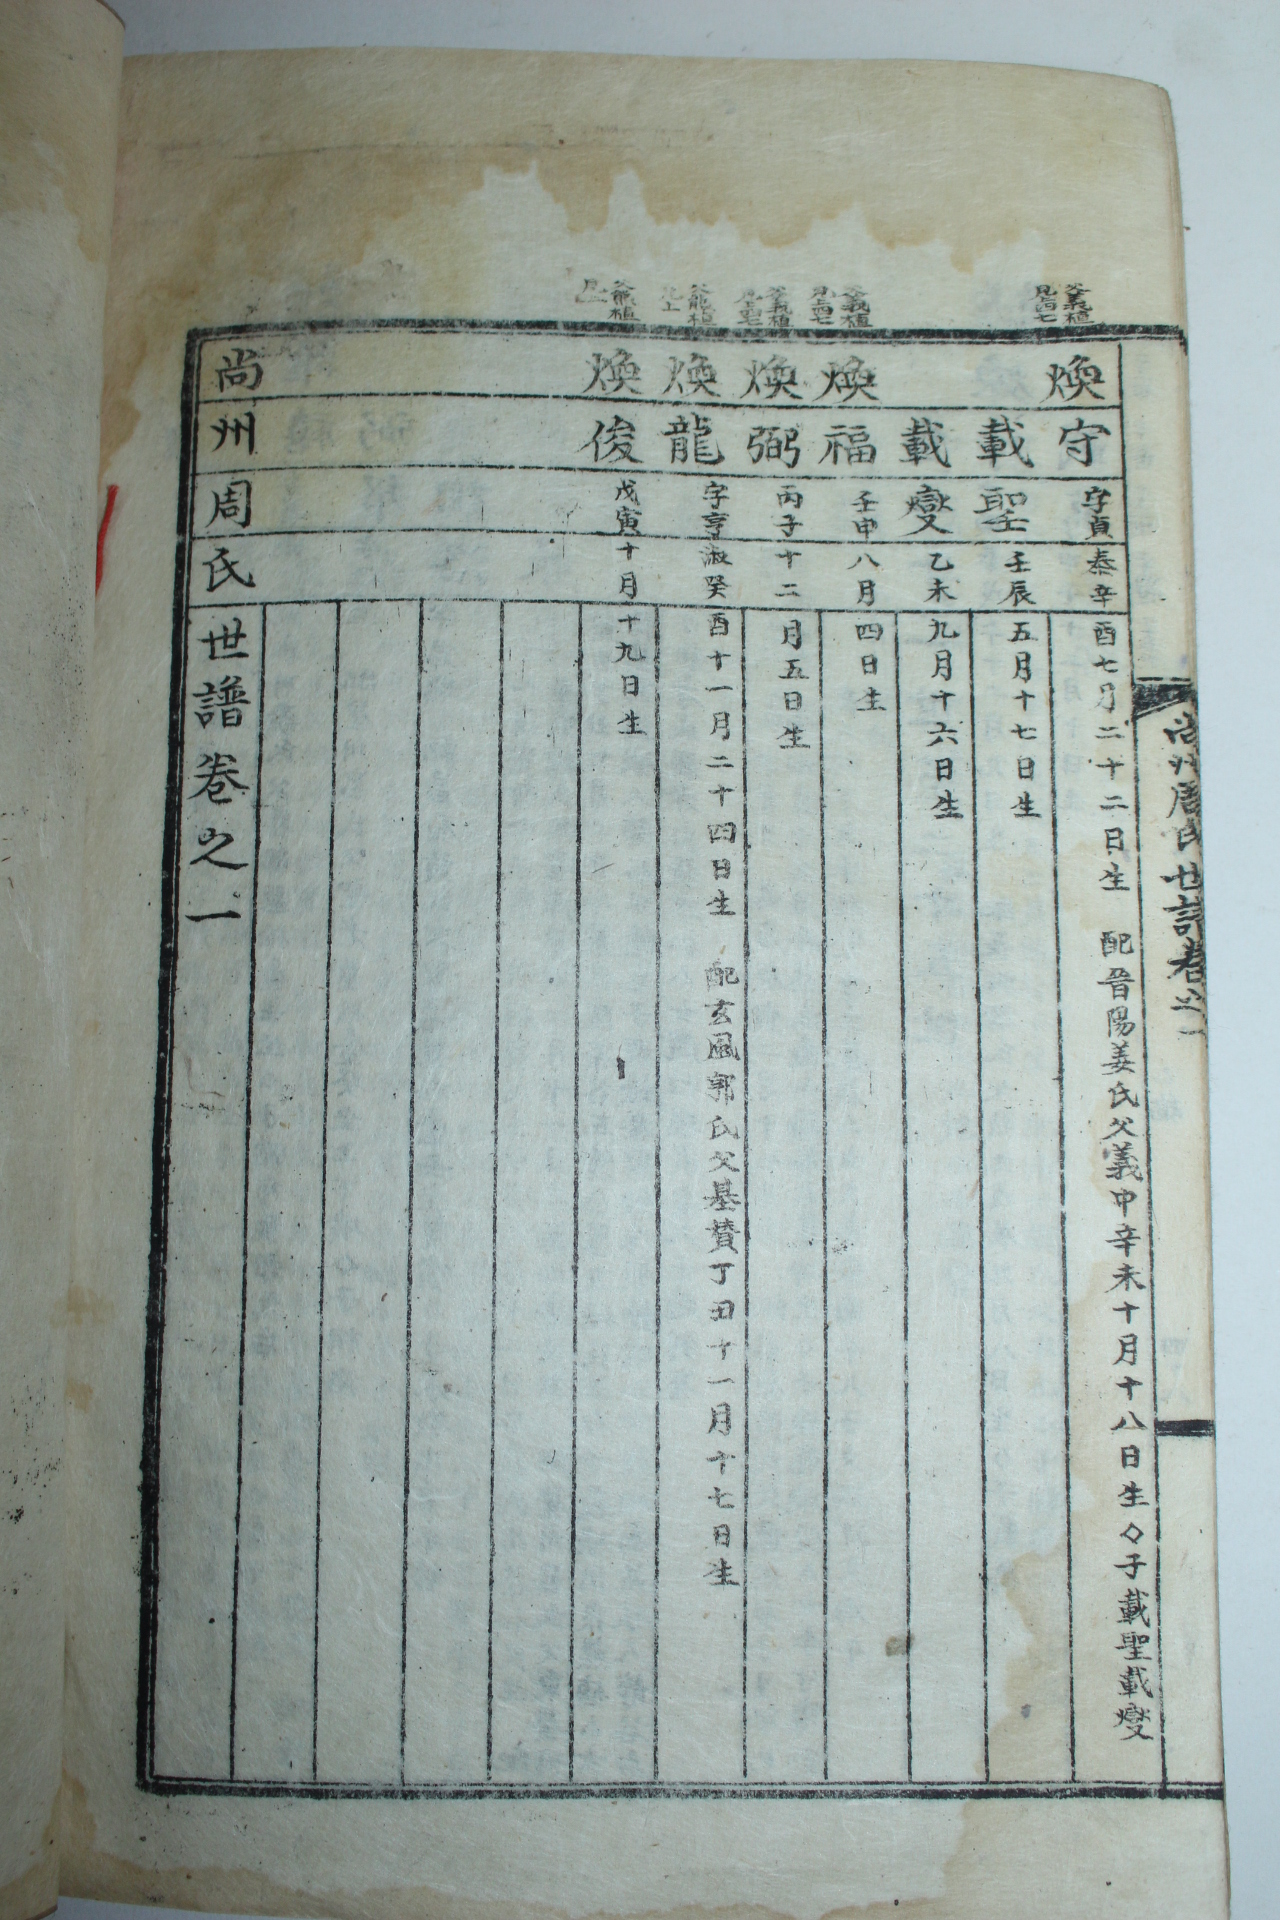 尙州周氏世譜卷之一
父義植
見上四七
煥守 字貞泰辛酉七月二十二日生 配晉陽姜氏父義中辛未十月十八日生々子載聖載燮
載聖 壬辰五月十七日生
載燮 乙未九月十六日生
父義植
見上四七
煥福 壬申八月四日生
父義植
見上四七
煥弼 丙子十二月五日生
父龍植
見上
煥龍 字亨淑癸酉十一月二十四日生 配玄風郭氏父基贊丁丑十一月十七日生
植
煥俊 戊寅十月十九日生
尙州周氏世譜卷之一